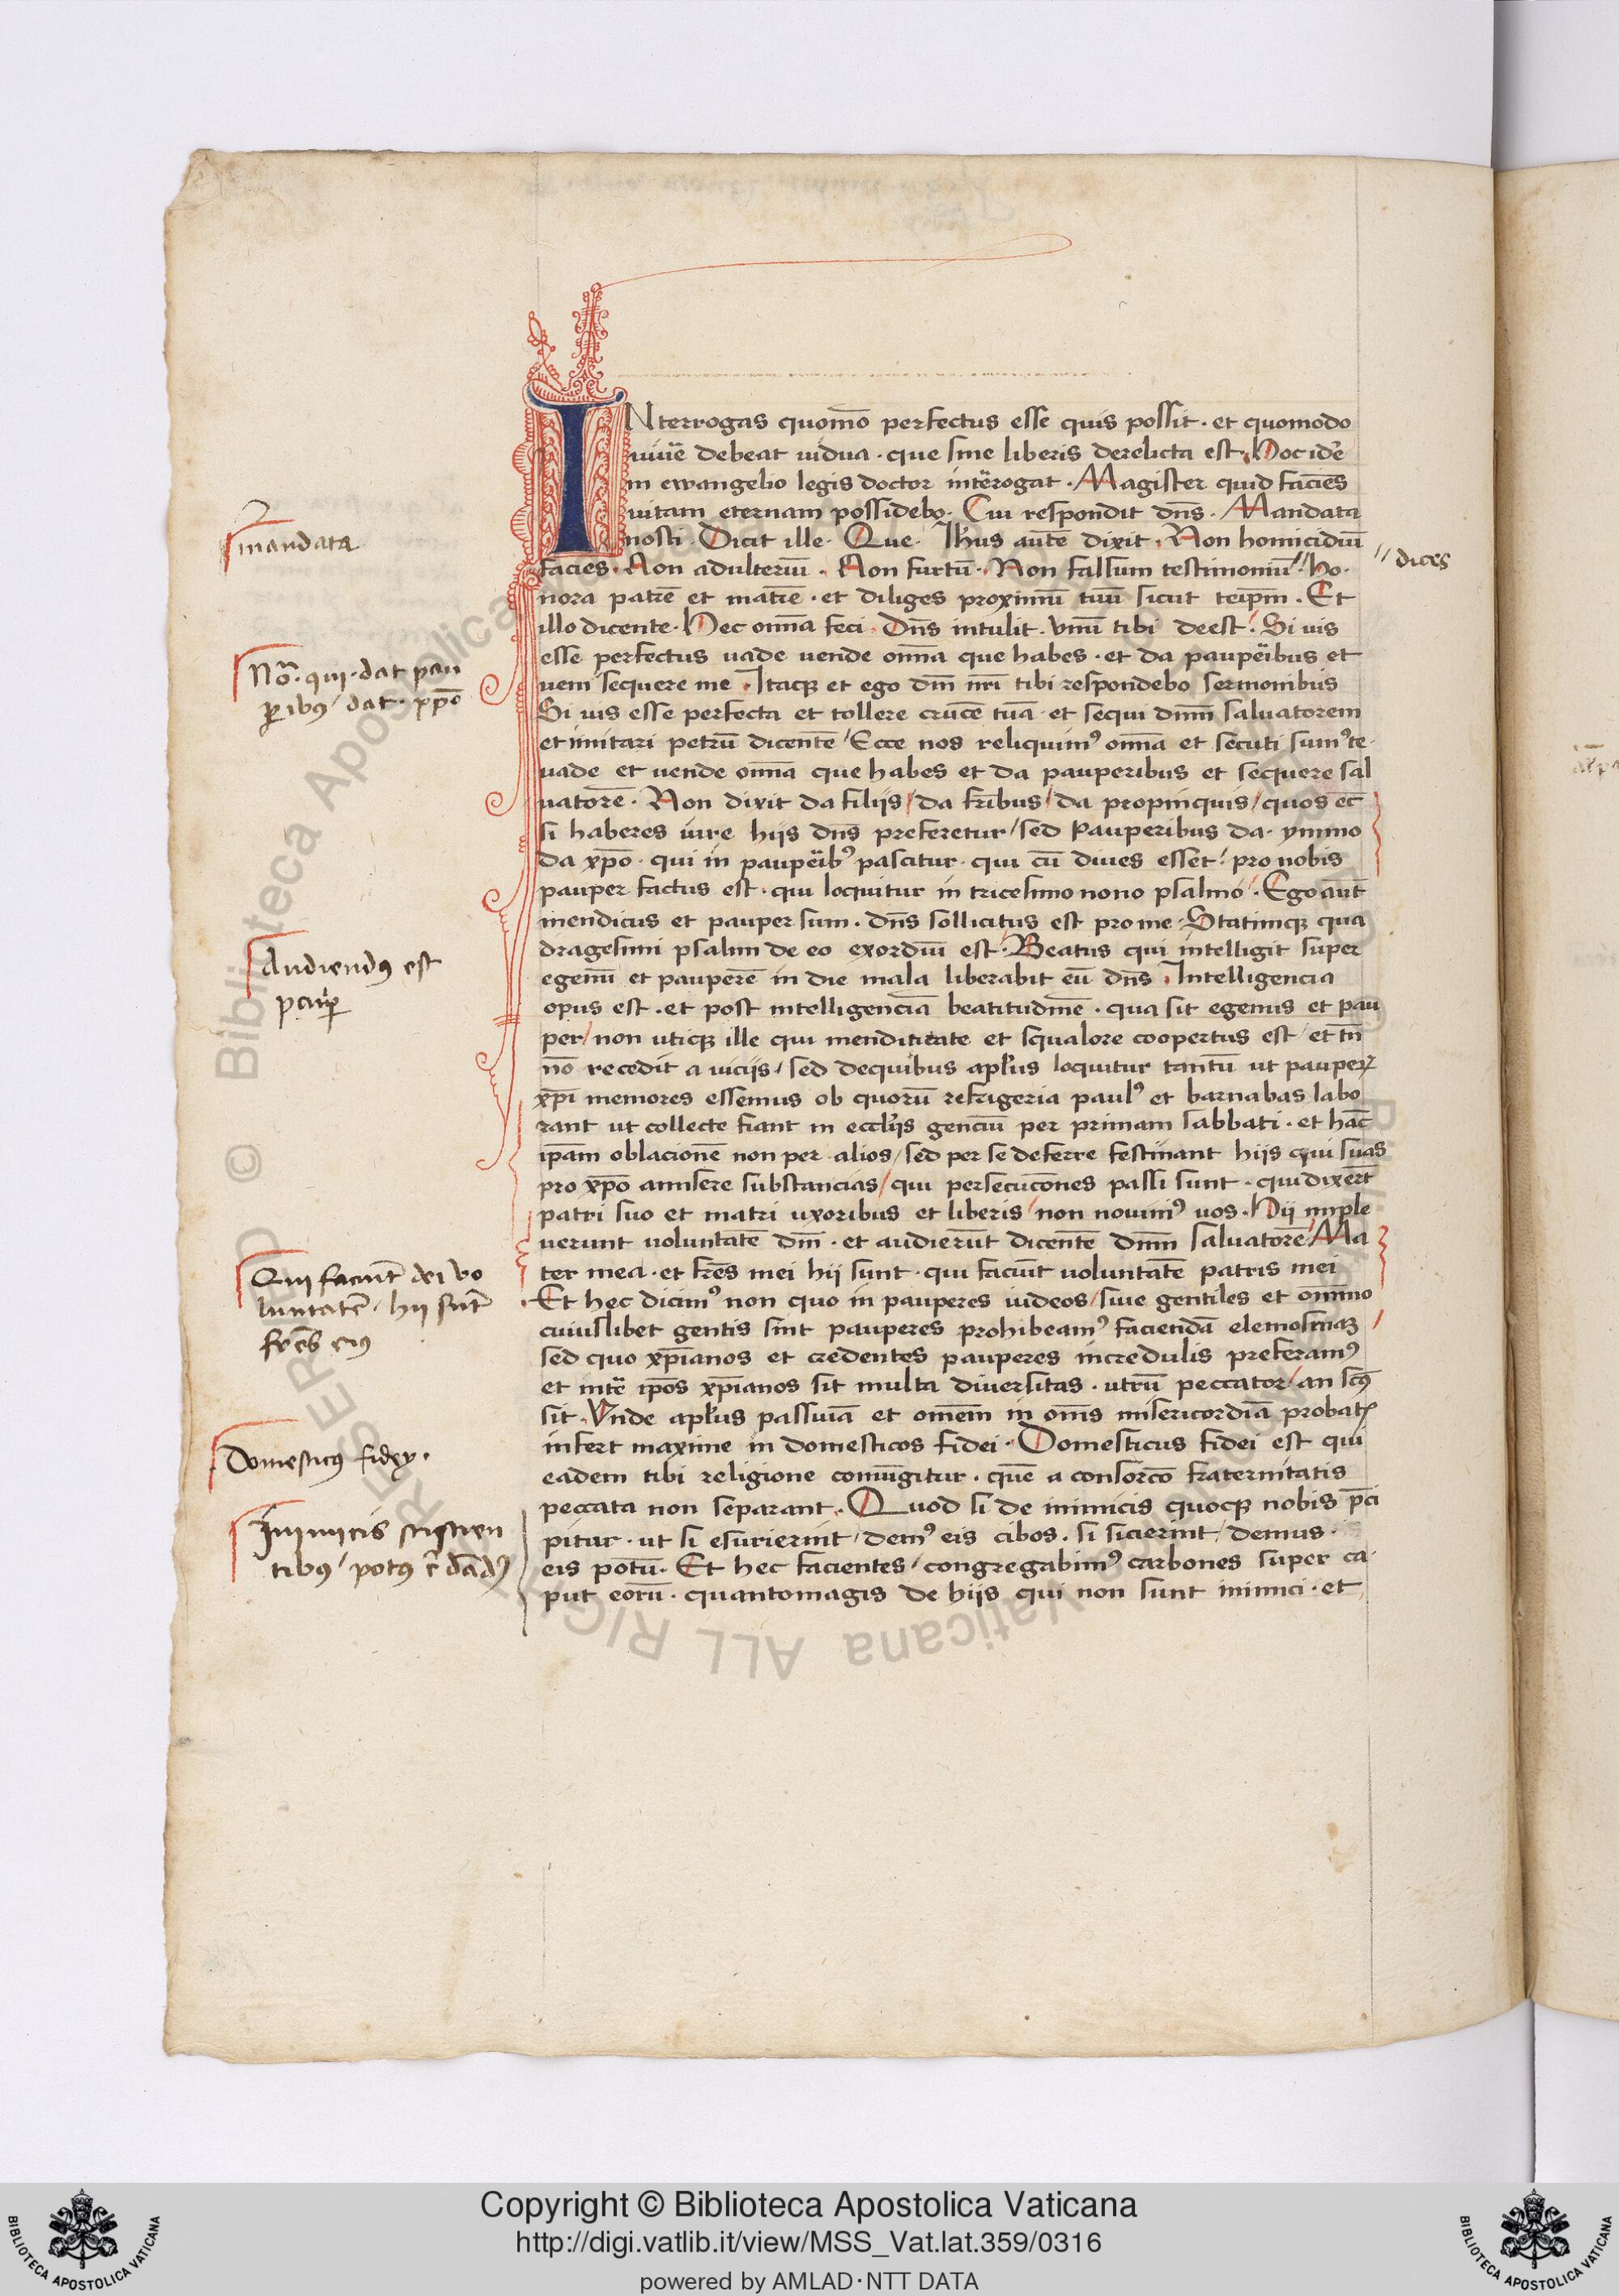 INterrogas quom̄o perfectus esse quis possit · et quomodo
uiuē debeat uidua · que sine liberis derelicta est · Hoc idē
in ewangelio legis doctor intērogat · Magister quid faciēs
uitam eternam possidebo · Cui respondit dn̄s · Mandata
nosti · Dicit ille · Que · Ihūs autē dixit · Non homicidiū
facies · Non adulteriū · Non furtū · Non falsum testimoniū // ho-
nora patrē et matrē · et diliges proximū tuū sicut teip̄m · Et
illo dicente · Hec om̄ia feci · Dn̄s intulit · Vnū tibi deest · Si uis
esse perfectus uade uende om̄ia que habes · et da paupēibus et
ueni sequere me · Itaqꝫ et ego dn̄i nr̄i tibi respondebo sermonibus
Si uis esse perfecta et tollere crucē tuā · et sequi dn̄m saluatorem
et imitari petrū dicentē / Ecce nos reliquimꝰ om̄ia et secuti sumꝰ te ·
uade et uende om̄ia que habes et da pauperibus et sequere sal
uatorē · Non dixit da filijs / da fr̄ibus / da propinquis / quos ec̄
si haberes iure hijs dn̄s preferetur / sed Pauperibus da · ymmo
da xp̄o · qui in paupēibꝰ pascitur · qui cū diues esset / pro nobis
pauper factus est · qui loquitur in tricesimo nono psalmo / · Ego aut̄
mendicus et pauper sum · dn̄s sollicitus est pro me · Statimqꝫ qua
dragesimi psalmi de eo exordiū est · Beatus qui intelligit super
egenū et pauperē in die mala liberabit eū dn̄s · Intelligencia
opus est · et post intelligenciā beatitudinē · qua sit egenus et pau
per / non utiqꝫ ille qui mendititate et squalore coopertus est / et tn̄
nō recedit a uicijs / sed dequibus apl̄us loquitur tantū ut pauperꝝ
xp̄i memores essemus ob quorū refrigeria paulꝰ et barnabas labo
rant ut collecte fiant in eccl̄ijs genciū per primam sabbati · et hāc
ip̄am oblacionē non per alios / sed per se deferre festinant hijs qui suas
pro xp̄o amisere substancias / qui persecucōnes passi sunt · qui dixer̄t
patri suo et matri uxoribus et liberis / non nouimꝰ uos · Hij imple
uerunt uoluntatē dn̄i · et audierūt dicentē dn̄m saluatorē / Ma
ter mea · et fr̄es mei hii sunt · qui faciūt uoluntatē patris mei
· Et hec dicimꝰ non quo in pauperes iudeos / siue gentiles et om̄ino
cuiuslibet gentis sint pauperes prohibeamꝰ faciendā elemosinaꝫ /
sed quo xp̄ianos et credentes pauperes incredulis preferamꝰ
et intē ip̄os xp̄ianos sit multa diuersitas · utrū peccator / an sc̄us
sit · Vnde apl̄us passiuā et om̄em in om̄s misericordiā probat᷒
infert maxime in domesticos fidei · Domesticus fidei est qui
eadem tibi religione coniūgitur · quē a consorcō fraternitatis
peccata non separant · Quod si de inimicis quoqꝫ nobis p̄ci
pitur · ut si esurierint / demꝰ eis cibos · si sicierint / demus ·
eis potū · Et hec facientes / congregabimꝰ carbones super ca-
put eorū · quantomagis de hijs qui non sunt inimici · et
// dices
mandata
No᷃ · qui · dat pau
ꝑibꝰ / dat · xp̄o
Audiendꝰ est
pauꝑ
Qui faciūt dei uo
luntatē / hij sūt
fr̄es eiꝰ
Domesticꝰ fidey ·
Inimicis
tibꝰ / potꝰ
Copyright © Biblioteca Apostolica Vaticana
http://digi.vatlib.it/view/MSS_Vat.lat.359/0316
powered by AMLAD·NTT DATA
BIBLIOTECA APOSTOLICA VATICANA
BIBLIOTECA APOSTOLICA VATICANA